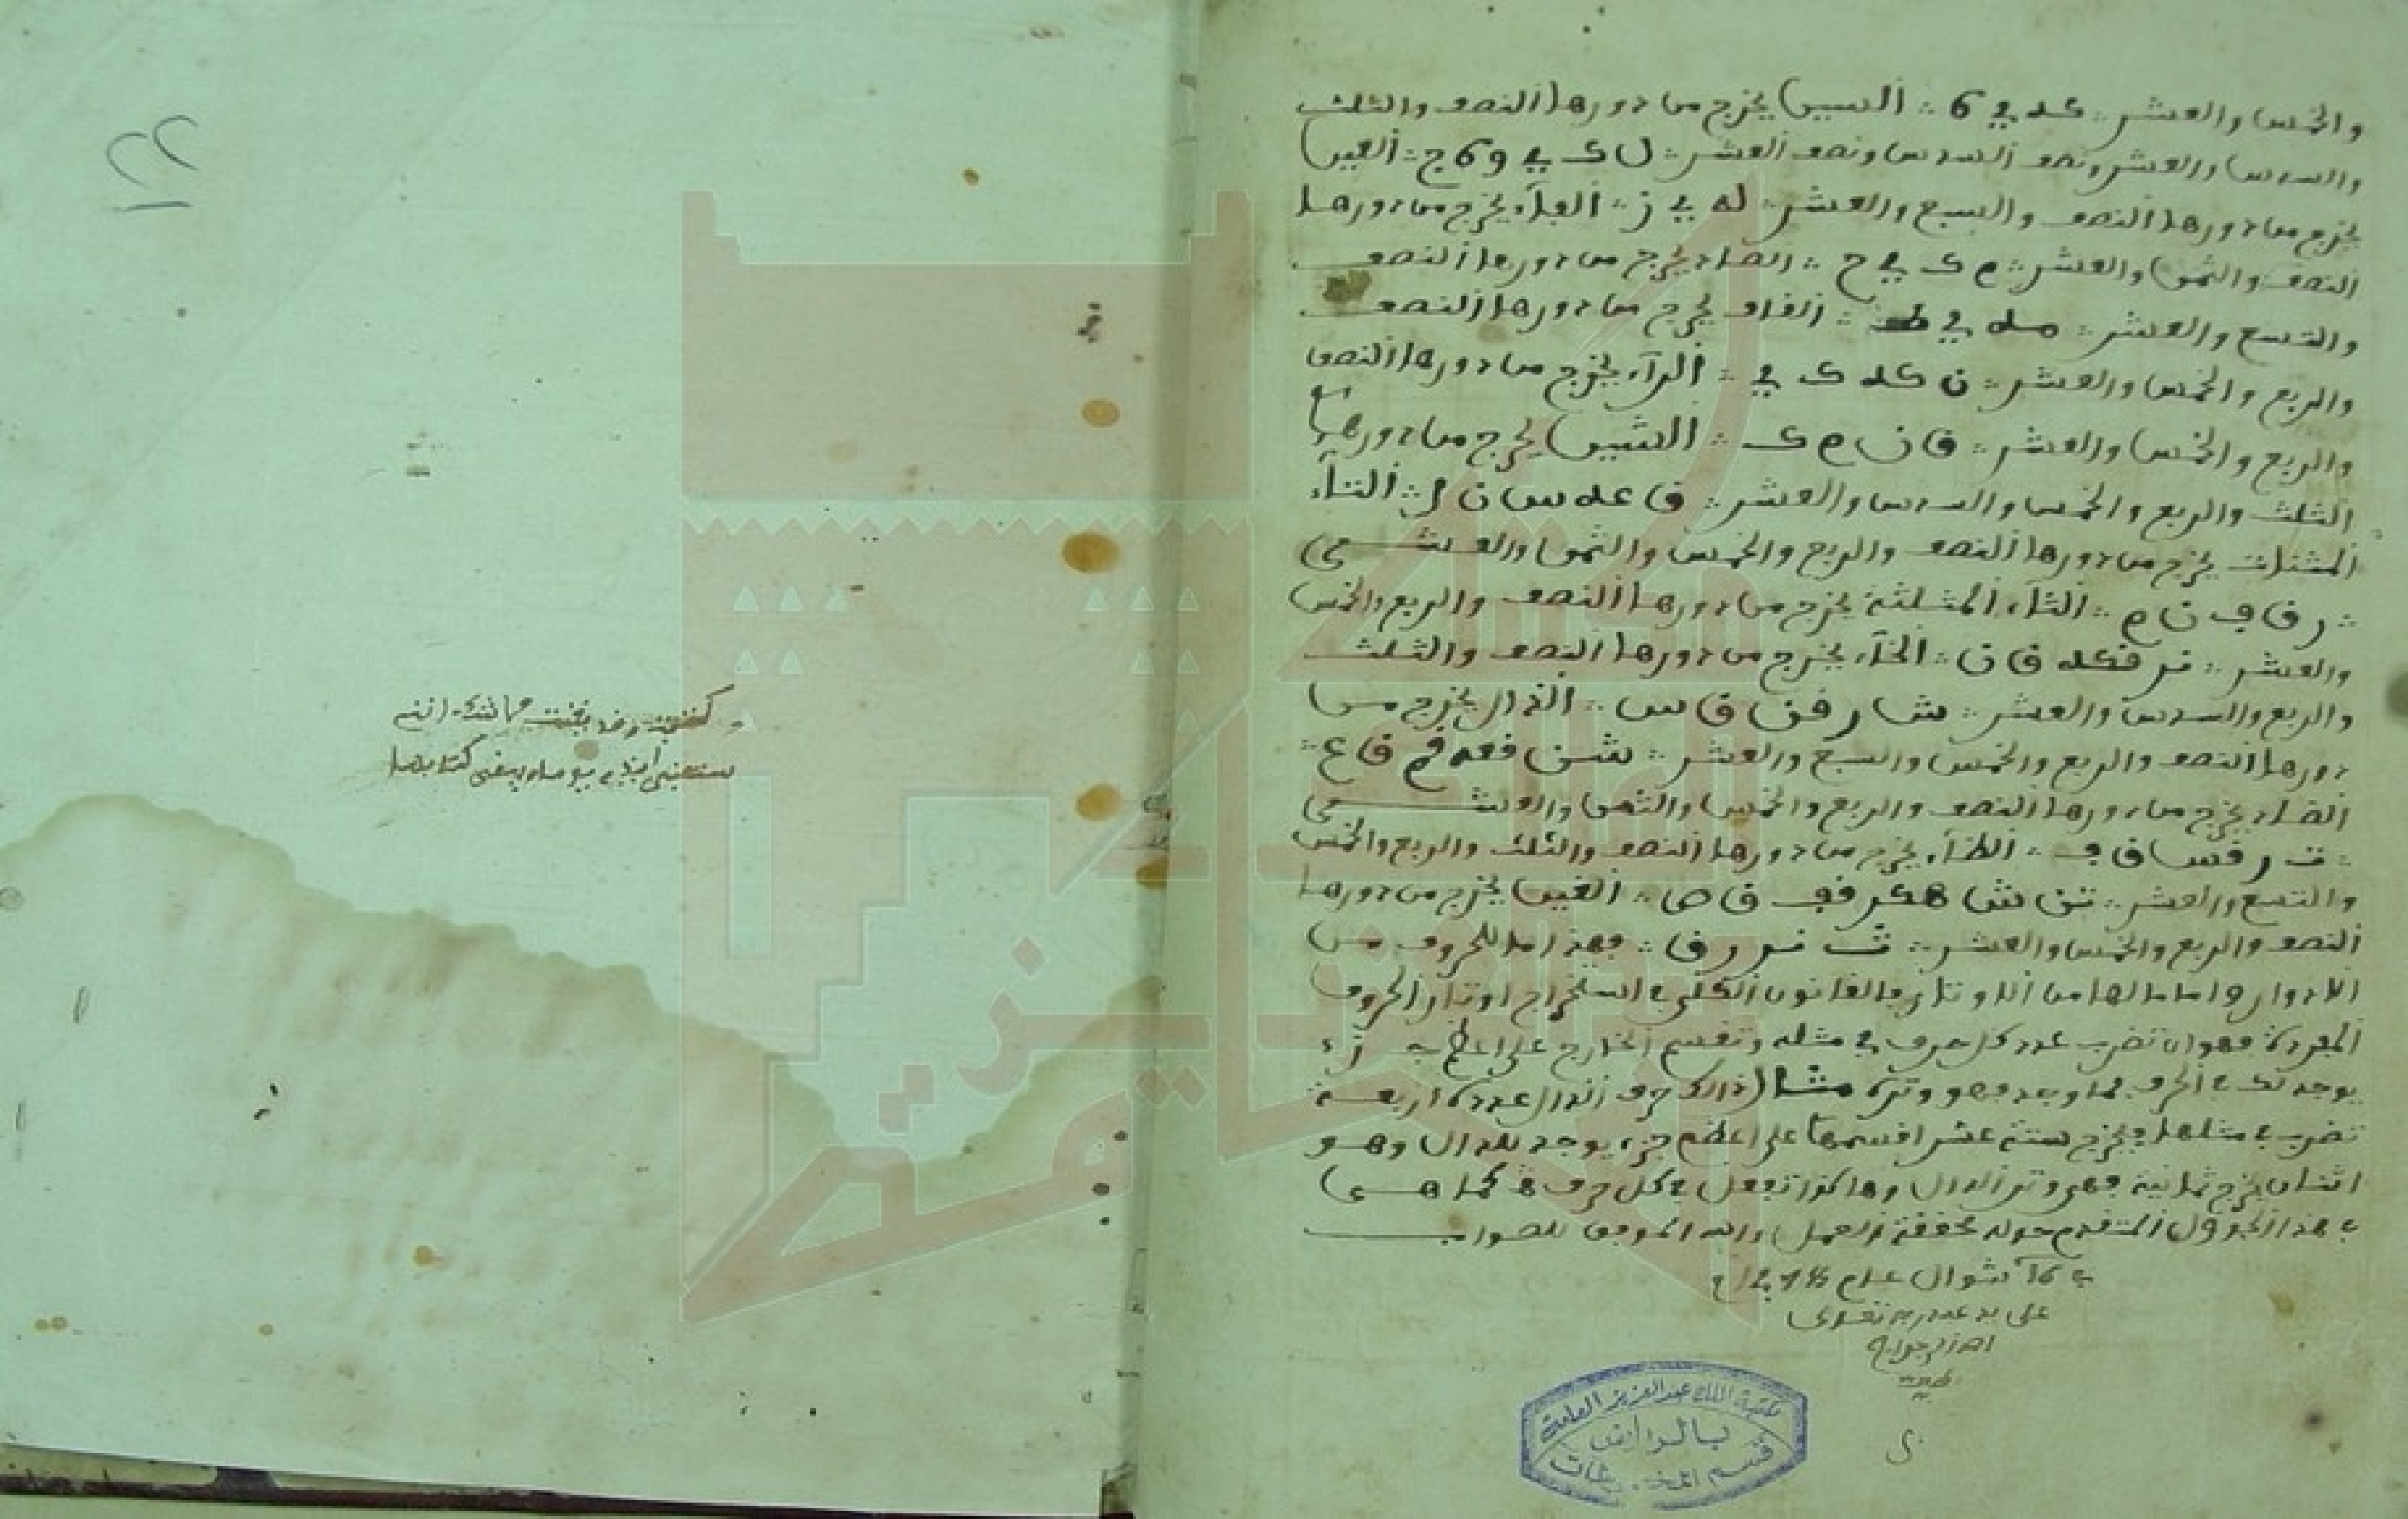 والخمس والعشر ∴ كه يى 6 ∴ السين يخرج من دورها النصف والثلث
والسدس والعشر ونصف السدس ونصف العشر ∴ ل ك يى و 6 ج ∴ العين
يخرج من دورها النصف والسبع والعشر ∴ له يى ز ∴ الفاء يخرج من دورها
النصف والثمن والعشر ∴ م ك يى ح ∴ الصاد يخرج من دورها النصف
والتسع والعشر ∴ مه يى ط ∴ القاف يخرج من دورها النصف
والربع والخمس والعشر ∴ ن كه ك يى ∴ الراء يخرج من دورها النصف
والربع والخمس والعشر ∴ ق ن م ك ∴ الشين يخرج من دورها
الثلث والربع والخمس والسدس والعشر ∴ ق عه س ن ل ∴ التاء
المثنات يخرج من دورها النصف والربع والخمس والثمن والعشر
∴ ر ق ف ن م ∴ الثاء المثلثة يخرج من دورها النصف والربع والخمس
والعشر ∴ نر فكه ق ن ∴ الخاء يخرج من دورها النصف والثلث
والربع والسدس والعشر ∴ ش ر فن ق س ∴ الذال يخرج من
دورها النصف والربع والخمس والسبع والعشر ∴ شن فعه فم ق ع ∴
الضاد يخرج من دورها النصف والربع والخمس والثمن والعشر
∴ ت ر فس ق ف ∴ الظاء يخرج من دورها النصف والثلث والربع والخمس
والتسع والعشر ∴ تن ش هكر فف ق ص ∴ الغين يخرج من دورها
النصف والربع والخمس والعشر ∴ ث نر ر ق ∴ فهذا ما للحروف من
الادوار واما ما لها من الاوتار فالقانون الكلي في استخراج اوتار الحروف
المفردة فهو ان تضرب عدد كل حرف في مثله وتقسم الخارج على اعظم جزء
يوجد لك في الحرف فما وجد فهو وتره مثال ذالك حرف الدال عدده اربعة
تضرب في مثلها فيخرج ستة عشر اقسمها على اعظم جزء يوجد للدال وهو
اثنان يخرج ثمانية فهي وتر الدال وهاكذا تفعل في كل حرف كما هي
في هذا الجدول المتقدم محققة العمل والله الموفق للصواب
شوال عام
على يد عبد ربه تعالى
مكتبة الملك عبدالعزيز العامة
بالرياض
قسم المخطوطات
كتبت وقد ايقنت
ستفنى ايدى ويبقى كتابها